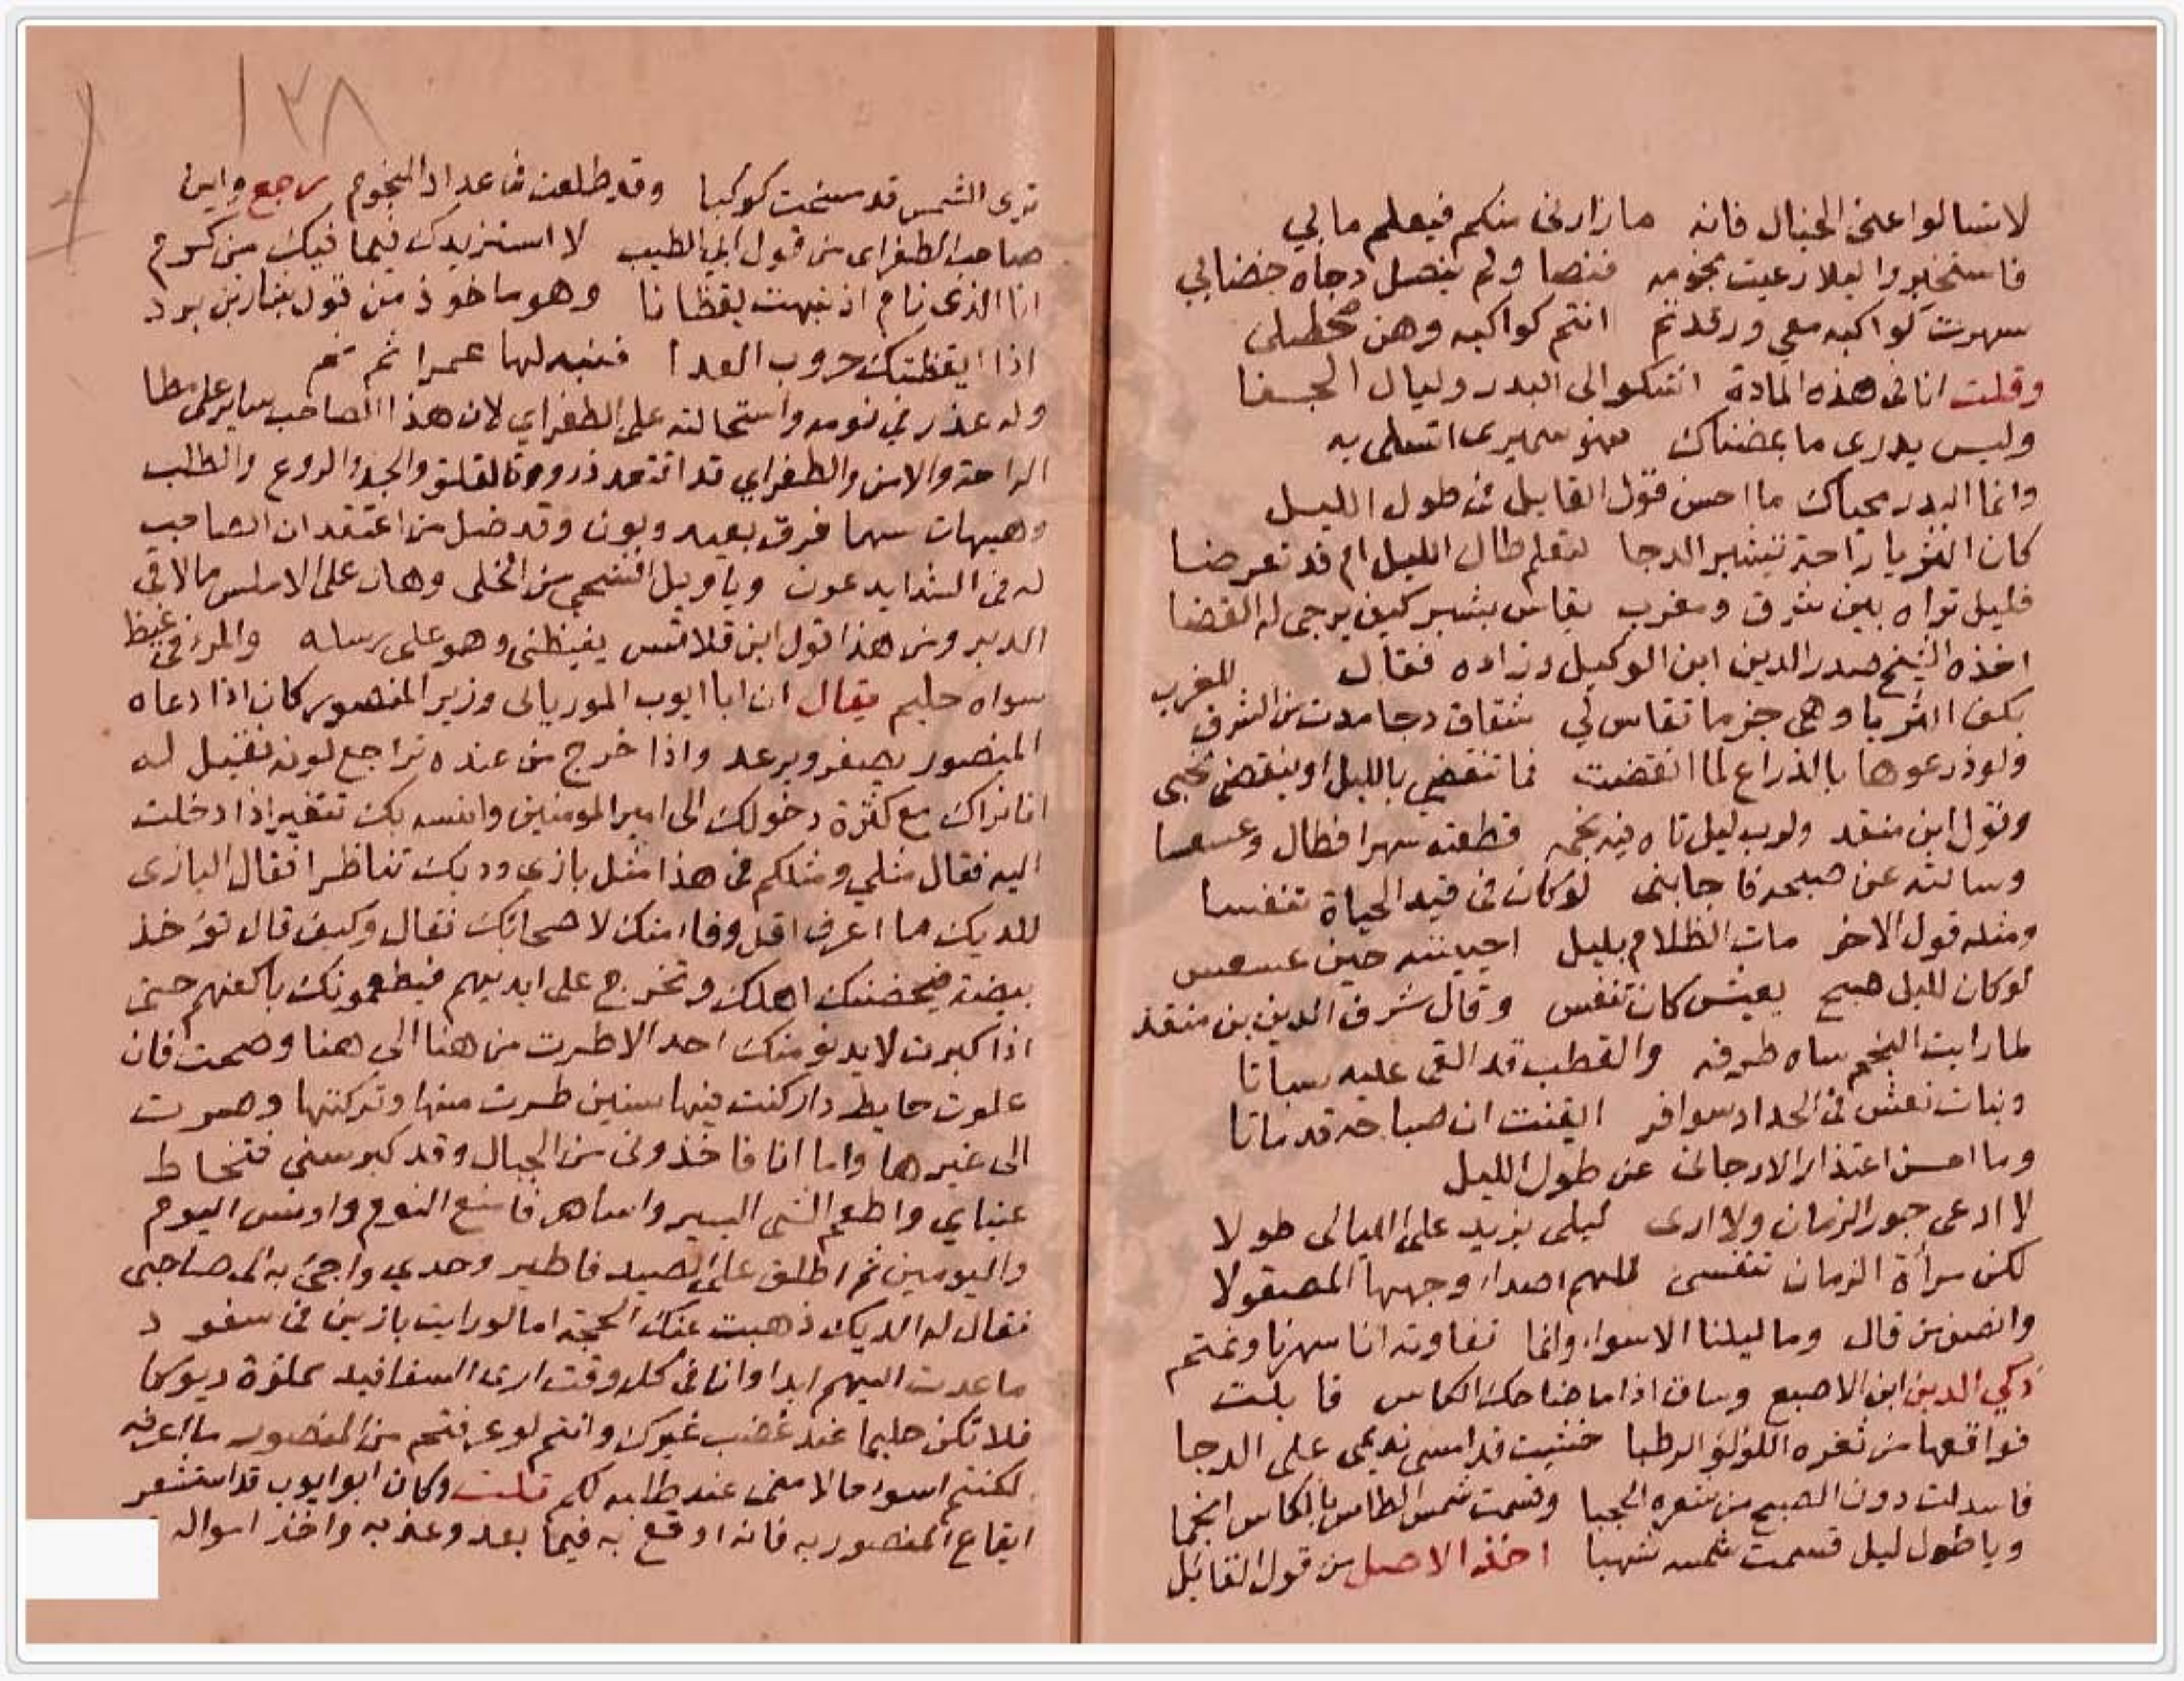 لا تسالوا عني الخيال فانه ما زارني منكم فيعلم ما بي
فاستخبروا ليلا رعيت نجومه فنضا ولم ينصل دجاه خضابي
سهرت كواكبه معي ورقدتم انتم كواكبه وهن
وقلت انا في هذه المادة اشكو الى البدر وليال الجفا
وليس يدري ما بمضناك فهو سميري اتسلى به
وانما البدر محياك ما احسن قول القايل في طول الليل
كان الثريا راحة تشبر الدجا لتعلم طال الليل ام قد تعرضا
فليل تراه بين شرق ومغرب يقاس بشبر كيف يرجى له انقضا
اخذه الشيخ صدر الدين ابن الوكيل وزاده فقال
بكف الثريا وهي جزما تقاس لي شقاق دجا مدت من الشرق للغرب
ولو ذرعوها بالذراع لما انقضت فما تنقضي بالليل او ينقضي نحبي
وقول ابن منقد ولرب ليل تاه فيه نجمه قطعته سهرا فطال وعسعسا
وسالته عن صبحه فاجابني لو كان في قيد الحياة تنفسا
ومثله قول الاخر مات الظلام بليل احييته حين عسعس
لو كان لليل صبح يعيش كان تنفس وقال شرف الدين بن منقذ
لما رايت النجم ساه طرفه والقطب قد القى عليه سباتا
وبنات نعش في الحداد سوافر ايقنت ان صباحه قد ماتا
وما احسن اعتذار الارجاني عن طول الليل
لا ادعي جور الزمان ولا ارى ليلي يزيد على الليالي طولا
لكن مرآة الزمان تنفسي للهم اصدا وجهها المصقولا
وانصف من قال وما ليلنا الا سواء وانما تفاوته انا سهرنا ونمتم
زكي الدين ابن الاصبع وساق اذا ما ضاحك الكاس قابلت
فواقعها من ثغره اللؤلؤ الرطبا خشيت قد امسى نديمي على الدجا
فاسدلت دون الصبح من شعره الحجبا وقسمت شمس الطاس بالكاس انجما
ويا طول ليل قسمت شمسه شهبا اخذ الاصل من قول القائل
١٢٨
ترى الشمس قد مسخت كوكبا وقد طلعت في عداد النجوم رجع واين
صاحب الطغراي من قول ابي الطيب لا استزيدك فيما فيك من كرم
انا الذي نام ان نبهت يقظانا وهو ماخوذ من قول بشار بن برد
اذا ايقظتك حروب العدا فنبه لها عمرا ثم نم
وله عذر في نومه واستحالته على الطغراي لان هذا الصاحب ساير على مطا
الراحة والامن والطغراي قد اقتعد والجد والروع والطلب
وهيهات بينهما فرق بعيد وبون وقد ضل من اعتقد ان الصاحب
له في الشدايد عون ويا ويل الشجي من الخلي وهان على الاملس ما لاقى
الدبر ومن هذا قول ابن قلاقس يغيظني وهو على رسله والمرء في غيظ
سواه حليم يقال ان ابا ايوب المورياني وزير المنصور كان اذا دعاه
المنصور يصفر ويرعد واذا خرج من عنده تراجع لونه فقيل له
انا نراك مع كثرة دخولك الى امير المومنين وانسه بك تتغير اذا دخلت
اليه فقال مثلي ومثلكم في هذا مثل بازي وديك تناظرا فقال البازي
للديك ما اعرف اقل وفاء منك لاصحابك فقال وكيف قال تؤخذ
بيضة فيحضنك اهلك وتخرج على ايديهم فيطعمونك باكفهم حتى
اذا كبرت لا يدنو منك احد الا طرت من هنا الى هنا وصحت فان
علوت حايط دار كنت فيها سنين طرت منها وتركتها وصرت
الى غيرها واما انا فاخذوني من الجبال وقد كبر سني فتخاط
عيناي واطعم الشي اليسير واساهر فامنع النوم واونس اليوم
واليومين ثم اطلق على الصيد فاطير وحدي واجئ به الى صاحبي
فقال له الديك ذهبت عنك الحجة اما لو رايت بازين في سفود
ما عدت اليهم ابدا وانا في كل وقت ارى السفافيد مملؤة ديوكا
فلا تكن حليما عند غضب غيرك وانتم لو عرفتم من المنصور ما اعرفه
لكنتم اسوا حالا مني عند طلبه لكم قلت وكان ابو ايوب قد استشعر
ايقاع المنصور به فانه اوقع به فيما بعد وعذبه واخذ امواله